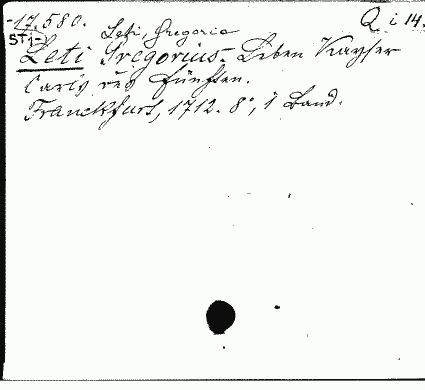 -17.580. Q i 14.
STJ- Leti, Gregorio
Leti Gregorius. Leben Kayser
Carls des Fünften.
Franckfurt, 1712. 8°, 1 Band.